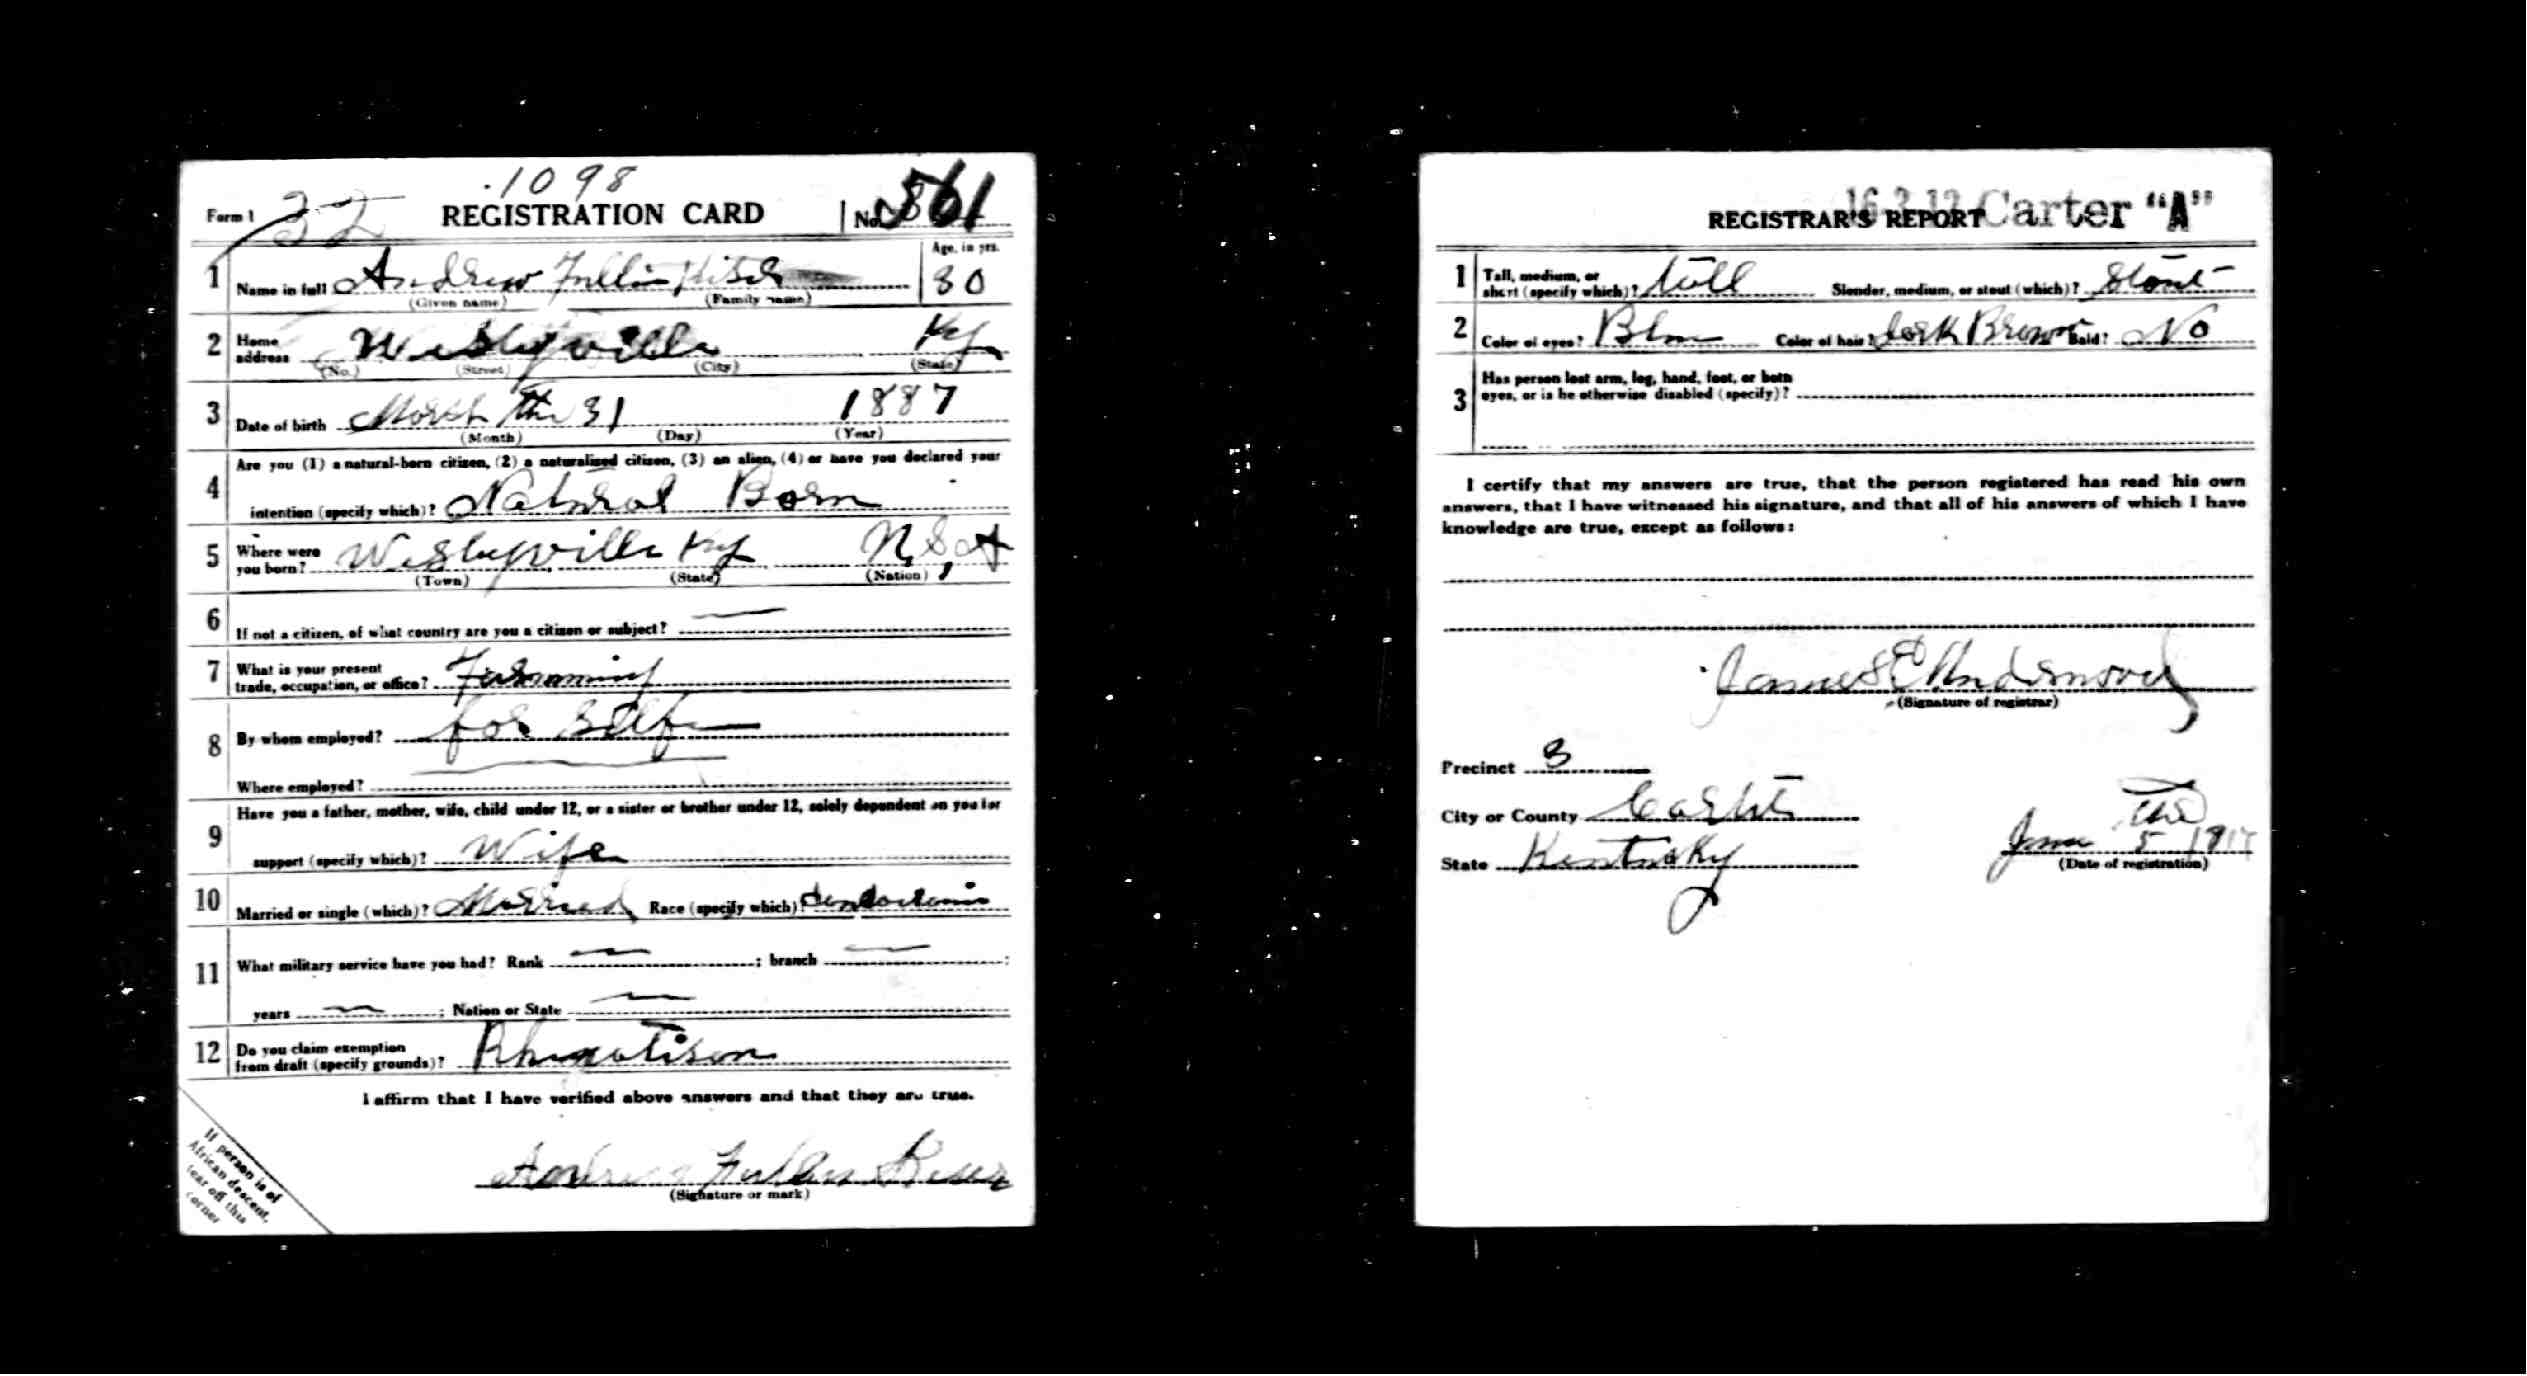 1098
Form 1 32 REGISTRATION CARD No. 561
Age, in yrs.
1 Name in full Andrew Fullin 30
(Given name) (Family name)
2 Home address Wesleyville Ky
(No.) (Street) (City) (State)
3 Date of birth March the 31 1887
(Month) (Day) (Year)
Are you (1) a natural-born citizen, (2) a naturalized citizen, (3) an alien, (4) or have you declared your
4 intention (specify which)? Natural Born
5 Where were you born? Wesleyville Ky U, S, A
(Town) (State) (Nation)
6 If not a citizen, of what country are you a citizen or subject? —
7 What is your present trade, occupation, or office? Farmming
8 By whom employed? for Self
Where employed?
Have you a father, mother, wife, child under 12, or a sister or brother under 12, solely dependent on you for
9 support (specify which)? Wife
10 Married or single (which)? Married Race (specify which)?
11 What military service have you had? Rank — ; branch — ;
years — ; Nation or State —
12 Do you claim exemption from draft (specify grounds)?
I affirm that I have verified above answers and that they are true.
Andrew
(Signature or mark)
If person is of
African descent,
tear off this
corner
16-3-12 Carter "A"
REGISTRAR'S REPORT
1 Tall, medium, or short (specify which)? tall Slender, medium, or stout (which)? Stout
2 Color of eyes? Blue Color of hair? Dark Brown Bald? No
Has person lost arm, leg, hand, foot, or both
3 eyes, or is he otherwise disabled (specify)?
I certify that my answers are true, that the person registered has read his own
answers, that I have witnessed his signature, and that all of his answers of which I have
knowledge are true, except as follows:
James E Underwood
(Signature of registrar)
Precinct 3
City or County Carter
State Kentucky June the 5 1917
(Date of registration)